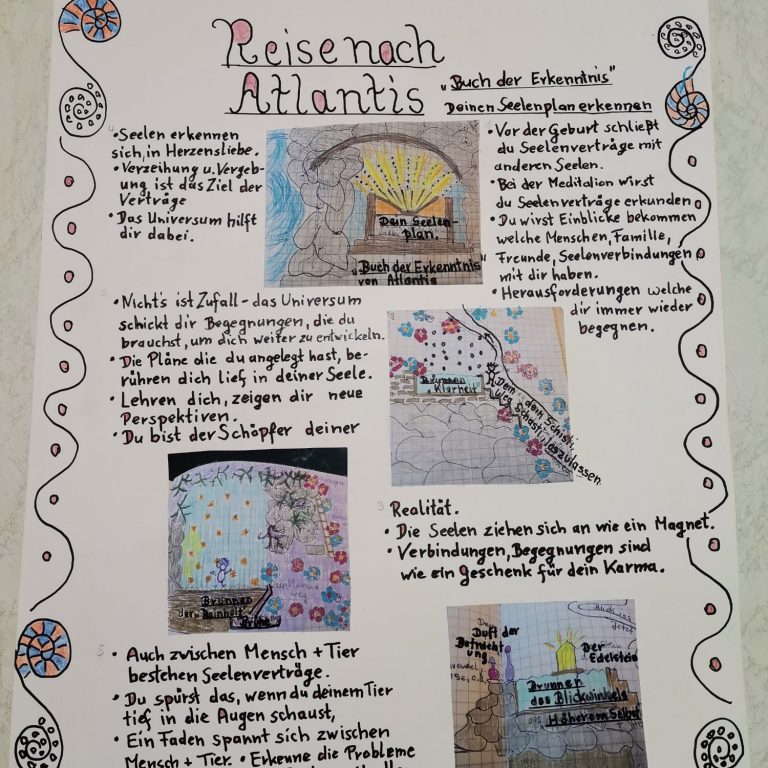 Reise nach
Atlantis
„Buch der Erkenntnis"
Deinen Seelenplan erkennen
• Seelen erkennen
sich, in Herzensliebe.
• Verzeihung u. Vergeb-
ung ist das Ziel der
Verträge
• Das Universum hilft
dir dabei.
Dein Seelen-
plan.
„Buch der Erkenntnis"
von Atlantis
• Vor der Geburt schließt
du Seelenverträge mit
anderen Seelen.
• Bei der Meditation wirst
du Seelenverträge erkunden
• Du wirst Einblicke bekommen
welche Menschen, Familie,
Freunde, Seelenverbindungen
mit dir haben.
• Herausforderungen welche
dir immer wieder
begegnen.
• Nicht's ist Zufall - das Universum
schickt dir Begegnungen, die du
brauchst, um dich weiter zu entwickeln.
• Die Pläne die du angelegt hast, be-
rühren dich tief in deiner Seele.
• Lehren dich, zeigen dir neue
Perspektiven.
• Du bist der Schöpfer deiner
Brunnen
Klarheit
Dein
Weg
zulassen.
3.
Realität.
• Die Seelen ziehen sich an wie ein Magnet.
• Verbindungen, Begegnungen sind
wie ein Geschenk für dein Karma.
Brunnen
der Reinheit
weg
5.
• Auch zwischen Mensch + Tier
bestehen Seelenverträge.
• Du spürst das, wenn du deinem Tier
tief in die Augen schaust,
• Ein Faden spannt sich zwischen
Mensch + Tier. • Erkenne die Probleme
Duft der
Betracht
ung
Der
Edelstein
Brunnen
des Blickwinkels
aus
Höherem Selbst